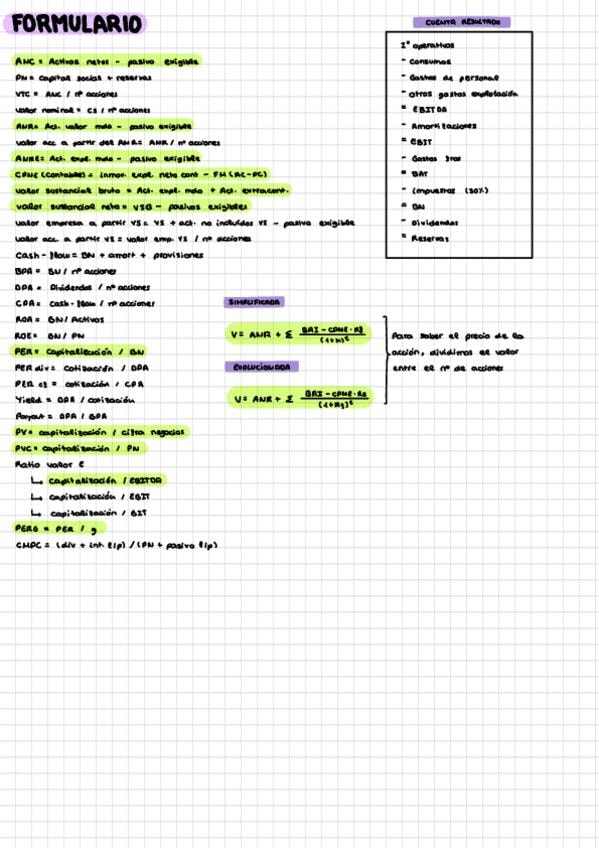 FORMULARIO
ANC = Activos netos - pasivo exigible
PN = capital social + reservas
VTC = ANC / nº acciones
valor nominal = CS / nº acciones
ANR = Act. valor mdo - pasivo exigible
valor acc a partir del ANR = ANR / nº acciones
ANRE = Act. expl. mdo - pasivo exigible
CPNE (contable) = inmov. expl. neto cont - FM (AC-PC)
valor sustancial bruto = Act. expl. mdo + Act. extracont.
valor sustancial neto = VSB - pasivos exigibles
valor empresa a partir VS = VS + act. no incluidos VS - pasivo exigible
valor acc. a partir VS = valor emp. VS / nº acciones
Cash-flow = BN + amort + provisiones
BPA = BN / nº acciones
DPA = Dividendos / nº acciones
CPA = Cash-flow / nº acciones
ROA = BN / Activos
ROE = BN / PN
PER = capitalización / BN
PER div = cotización / DPA
PER cf = cotización / CPA
Yield = DPA / cotización
Payout = DPA / BPA
PV = capitalización / cifra negocios
PVC = capitalización / PN
Ratio valor E
↳ capitalización / EBITDA
↳ capitalización / EBIT
↳ capitalización / BIT
PERG = PER / g
CMPC = (div + int. l/p) / (PN + pasivo l/p)
SIMPLIFICADA
V = ANR + Σ BAI - CPNE · Rf / (1+K)^t
EVOLUCIONADA
V = ANR + Σ BAI - CPNE · Rf / (1+Rf)^t
Para saber el precio de la
acción, dividimos el valor
entre el nº de acciones
CUENTA RESULTADO
Iº operativos
- Consumos
- Gastos de personal
- otros gastos explotación
= EBITDA
- Amortizaciones
= EBIT
- Gastos fros
= BAT
- Impuestos (30%)
= BN
- Dividendos
= Reservas